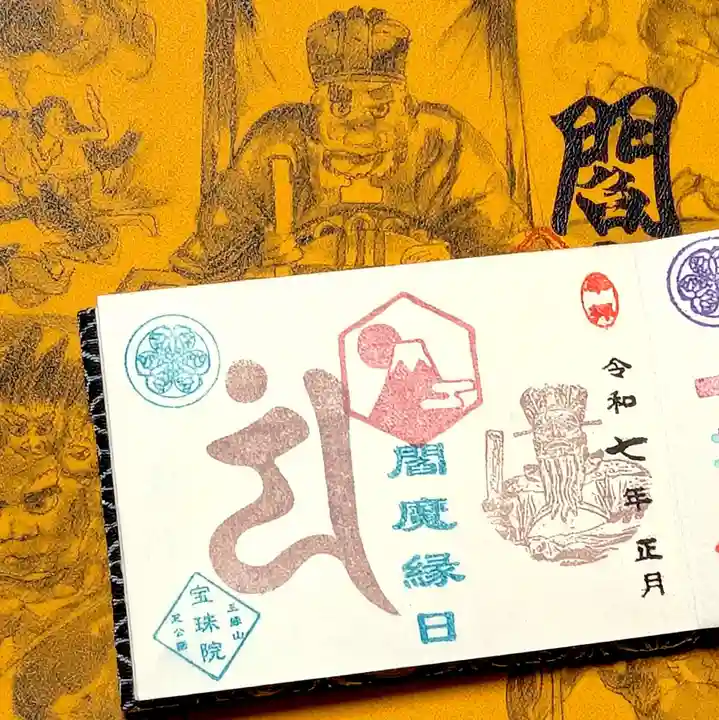 閻
令和七年正月
閻魔縁日
宝珠院
芝公園